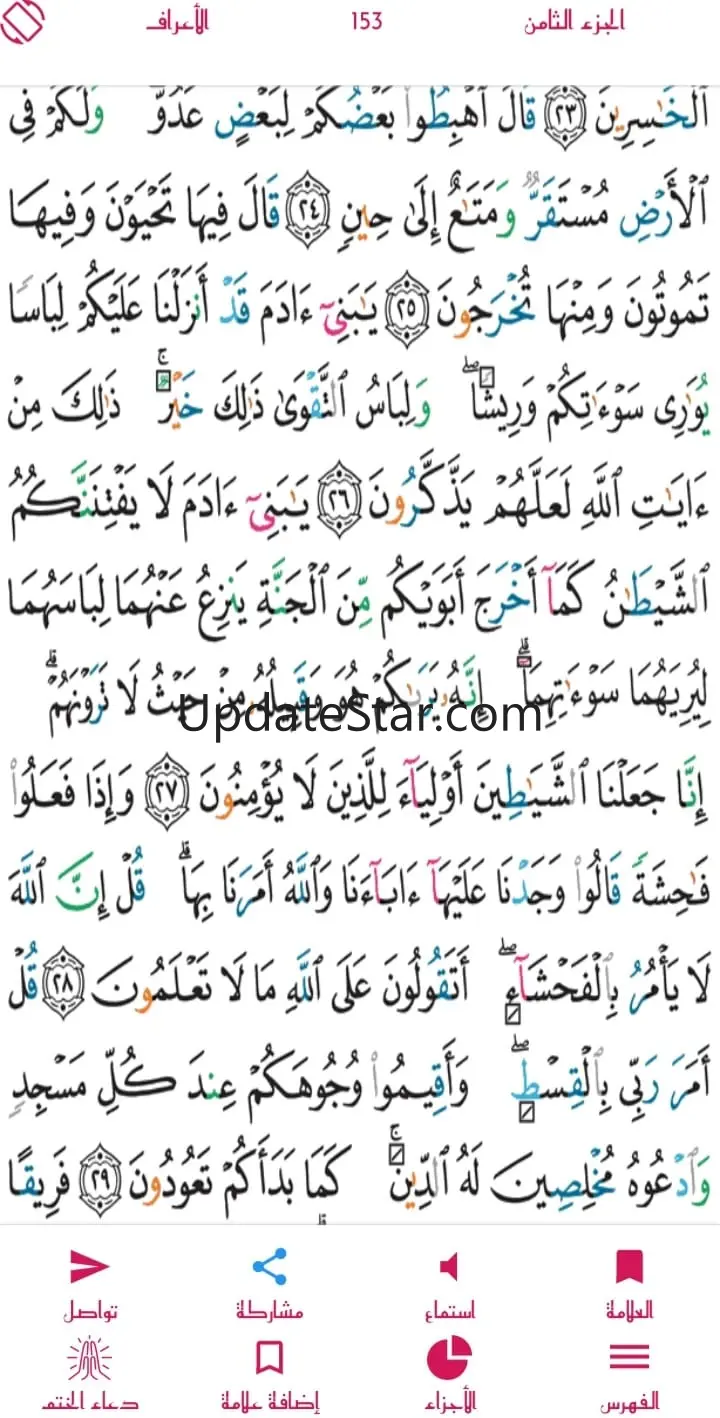 الجزء الثامن 153 الأعراف
ٱلۡخَٰسِرِينَ ٢٣ قَالَ ٱهۡبِطُواْ بَعۡضُكُمۡ لِبَعۡضٍ عَدُوّٞ وَلَكُمۡ فِي
ٱلۡأَرۡضِ مُسۡتَقَرّٞ وَمَتَٰعٌ إِلَىٰ حِينٖ ٢٤ قَالَ فِيهَا تَحۡيَوۡنَ وَفِيهَا
تَمُوتُونَ وَمِنۡهَا تُخۡرَجُونَ ٢٥ يَٰبَنِيٓ ءَادَمَ قَدۡ أَنزَلۡنَا عَلَيۡكُمۡ لِبَاسٗا
يُوَٰرِي سَوۡءَٰتِكُمۡ وَرِيشٗاۖ وَلِبَاسُ ٱلتَّقۡوَىٰ ذَٰلِكَ خَيۡرٞۚ ذَٰلِكَ مِنۡ
ءَايَٰتِ ٱللَّهِ لَعَلَّهُمۡ يَذَّكَّرُونَ ٢٦ يَٰبَنِيٓ ءَادَمَ لَا يَفۡتِنَنَّكُمُ
ٱلشَّيۡطَٰنُ كَمَآ أَخۡرَجَ أَبَوَيۡكُم مِّنَ ٱلۡجَنَّةِ يَنزِعُ عَنۡهُمَا لِبَاسَهُمَا
لِيُرِيَهُمَا سَوۡءَٰتِهِمَآۚ إِنَّهُۥ يَرَىٰكُمۡ هُوَ وَقَبِيلُهُۥ مِنۡ حَيۡثُ لَا تَرَوۡنَهُمۡۗ
UpdateStar.com
إِنَّا جَعَلۡنَا ٱلشَّيَٰطِينَ أَوۡلِيَآءَ لِلَّذِينَ لَا يُؤۡمِنُونَ ٢٧ وَإِذَا فَعَلُواْ
فَٰحِشَةٗ قَالُواْ وَجَدۡنَا عَلَيۡهَآ ءَابَآءَنَا وَٱللَّهُ أَمَرَنَا بِهَاۗ قُلۡ إِنَّ ٱللَّهَ
لَا يَأۡمُرُ بِٱلۡفَحۡشَآءِۖ أَتَقُولُونَ عَلَى ٱللَّهِ مَا لَا تَعۡلَمُونَ ٢٨ قُلۡ
أَمَرَ رَبِّي بِٱلۡقِسۡطِۖ وَأَقِيمُواْ وُجُوهَكُمۡ عِندَ كُلِّ مَسۡجِدٖ
وَٱدۡعُوهُ مُخۡلِصِينَ لَهُ ٱلدِّينَۚ كَمَا بَدَأَكُمۡ تَعُودُونَ ٢٩ فَرِيقًا
العلامة استماع مشاركة تواصل
الفهرس الأجزاء إضافة علامة دعاء الختم